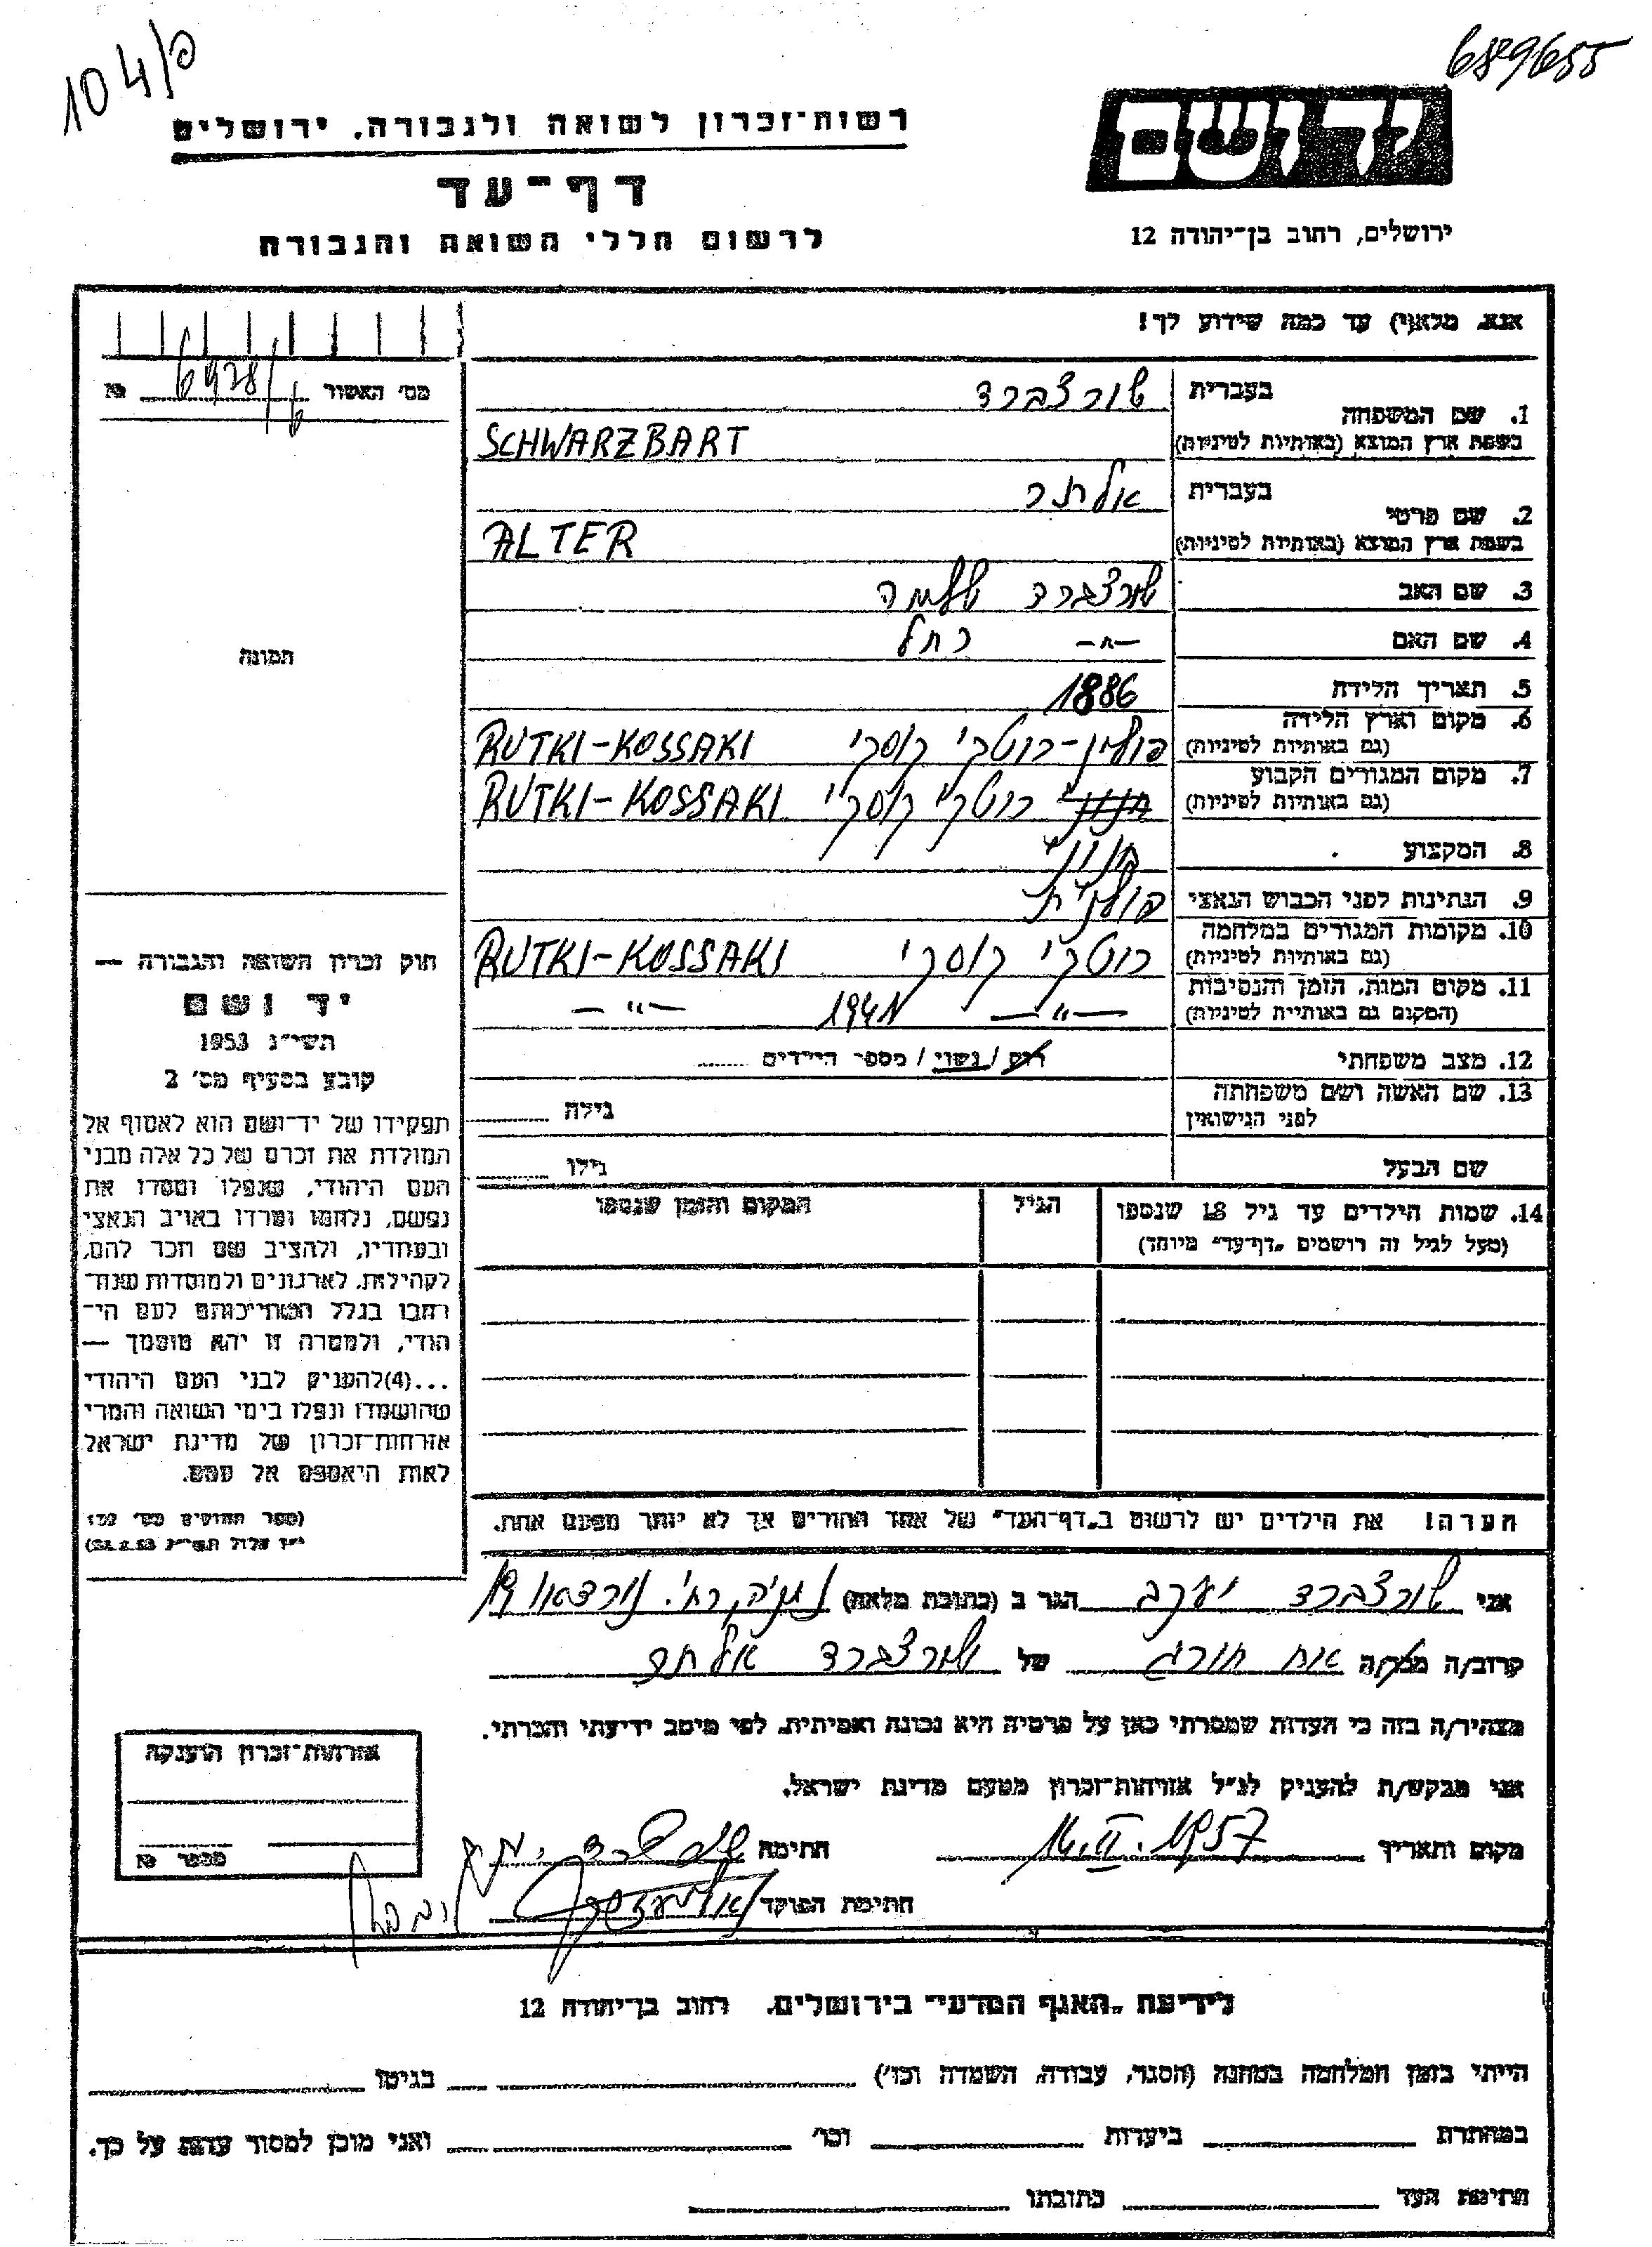 104/פ
689655
יד ושם
רשות־זכרון לשואה ולגבורה, ירושלים
דף־עד
לרשום חללי השואה והגבורה
ירושלים, רחוב בן־יהודה 12
אנא, מלא(י) עד כמה שידוע לך!
מס' האשור 6928/ №
1. שם המשפחה
בעברית שורצברד
בשפת ארץ המוצא (באותיות לטיניות) SCHWARZBART
2. שם פרטי
בעברית אלתר
בשפת ארץ המוצא (באותיות לטיניות) ALTER
3. שם האב שורצברד שלמה
4. שם האם —〃— רחל
תמונה
5. תאריך הלידה 1886
6. מקום וארץ הלידה (גם באותיות לטיניות) פולין-רוטקי קוסקי RUTKI-KOSSAKI
7. מקום המגורים הקבוע (גם באותיות לטיניות) רוטקי קוסקי RUTKI-KOSSAKI
8. המקצוע חנווני
9. הנתינות לפני הכבוש הנאצי פולנית
10. מקומות המגורים במלחמה (גם באותיות לטיניות) רוטקי קוסקי RUTKI-KOSSAKI
11. מקום המות, הזמן והנסיבות (המקום גם באותיות לטיניות) —〃— 1941 —〃—
12. מצב משפחתי רווק / נשוי / מספר הילדים ........
13. שם האשה ושם משפחתה לפני הנישואין גילה ........
שם הבעל גילו ........
14. שמות הילדים עד גיל 18 שנספו (מעל לגיל זה רושמים "דף־עד" מיוחד)
הגיל
המקום והזמן שנספו
חוק זכרון השואה והגבורה —
יד ושם
תשי"ג 1953
קובע בסעיף מס' 2
תפקידו של יד־ושם הוא לאסוף אל
המולדת את זכרם של כל אלה מבני
העם היהודי, שנפלו ומסרו את
נפשם, נלחמו ומרדו באויב הנאצי
ובעוזריו, ולהציב שם וזכר להם,
לקהילות, לארגונים ולמוסדות שנח־
רבו בגלל השתייכותם לעם הי־
הודי, ולמטרה זו יהא מוסמך —
...(4)להעניק לבני העם היהודי
שהושמדו ונפלו בימי השואה והמרי
אזרחות־זכרון של מדינת ישראל
לאות היאספם אל עמם.
(ספר החוקים מס' 132
י"ז אלול תשי"ג 28.8.53)
הערה! את הילדים יש לרשום ב"דף־העד" של אחד ההורים אך לא יותר מפעם אחת.
אני שורצברד יעקב הגר ב (כתובת מלאה) נתניה, רח'. נורדאו 19
קרוב/ה מכר/ה אח חורג של שורצברד אלתר
מצהיר/ה בזה כי העדות שמסרתי כאן על פרטיה היא נכונה ואמיתית, לפי מיטב ידיעתי והכרתי.
אני מבקש/ת להעניק לנ"ל אזרחות־זכרון מטעם מדינת ישראל.
מקום ותאריך 14.II.1957 חתימה
חתימת הפוקד
אזרחות־זכרון הוענקה
מספר №
לידיעת "האגף המדעי" בירושלים, רחוב בן־יהודה 12
הייתי בזמן המלחמה במחנה (הסגר, עבודה, השמדה וכו') בגיטו
במחתרת ביערות וכו' ואני מוכן למסור עדות על כך.
חתימת העד כתובתו